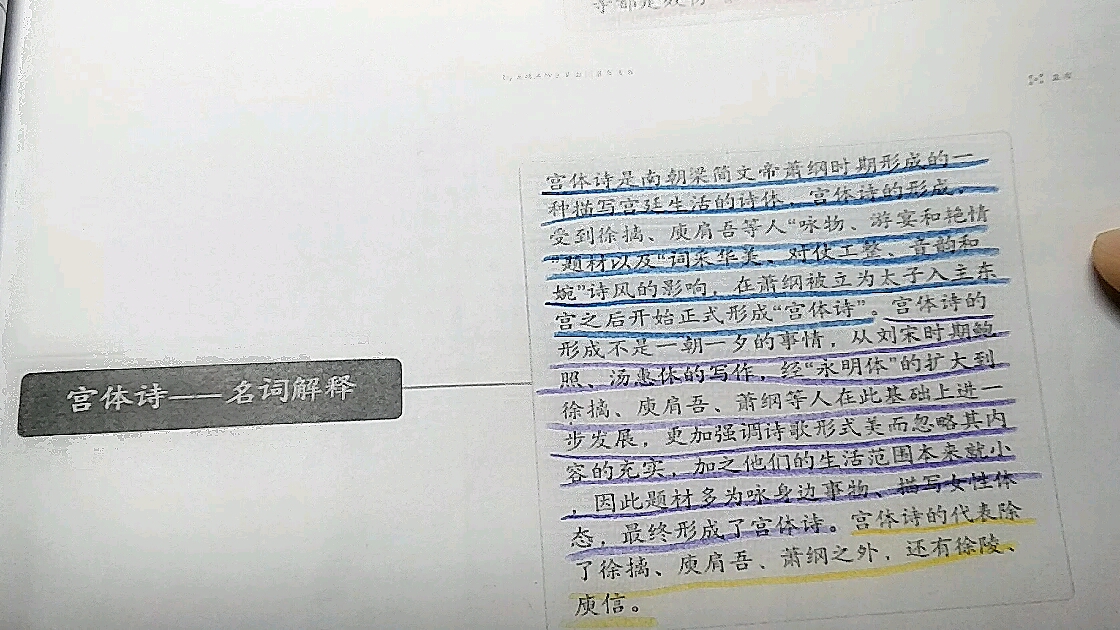 等都是
宫体诗——名词解释
宫体诗是南朝梁简文帝萧纲时期形成的一
种描写宫廷生活的诗体，宫体诗的形成，
受到徐摛、庾肩吾等人“咏物、游宴和艳情
”题材以及“词采华美、对仗工整、音韵和
婉”诗风的影响，在萧纲被立为太子入主东
宫之后开始正式形成“宫体诗”。宫体诗的
形成不是一朝一夕的事情，从刘宋时期鲍
照、汤惠休的写作，经“永明体”的扩大到
徐摛、庾肩吾、萧纲等人在此基础上进一
步发展，更加强调诗歌形式美而忽略其内
容的充实，加之他们的生活范围本来就小
，因此题材多为咏身边事物、描写女性体
态，最终形成了宫体诗。宫体诗的代表除
了徐摛、庾肩吾、萧纲之外，还有徐陵、
庾信。